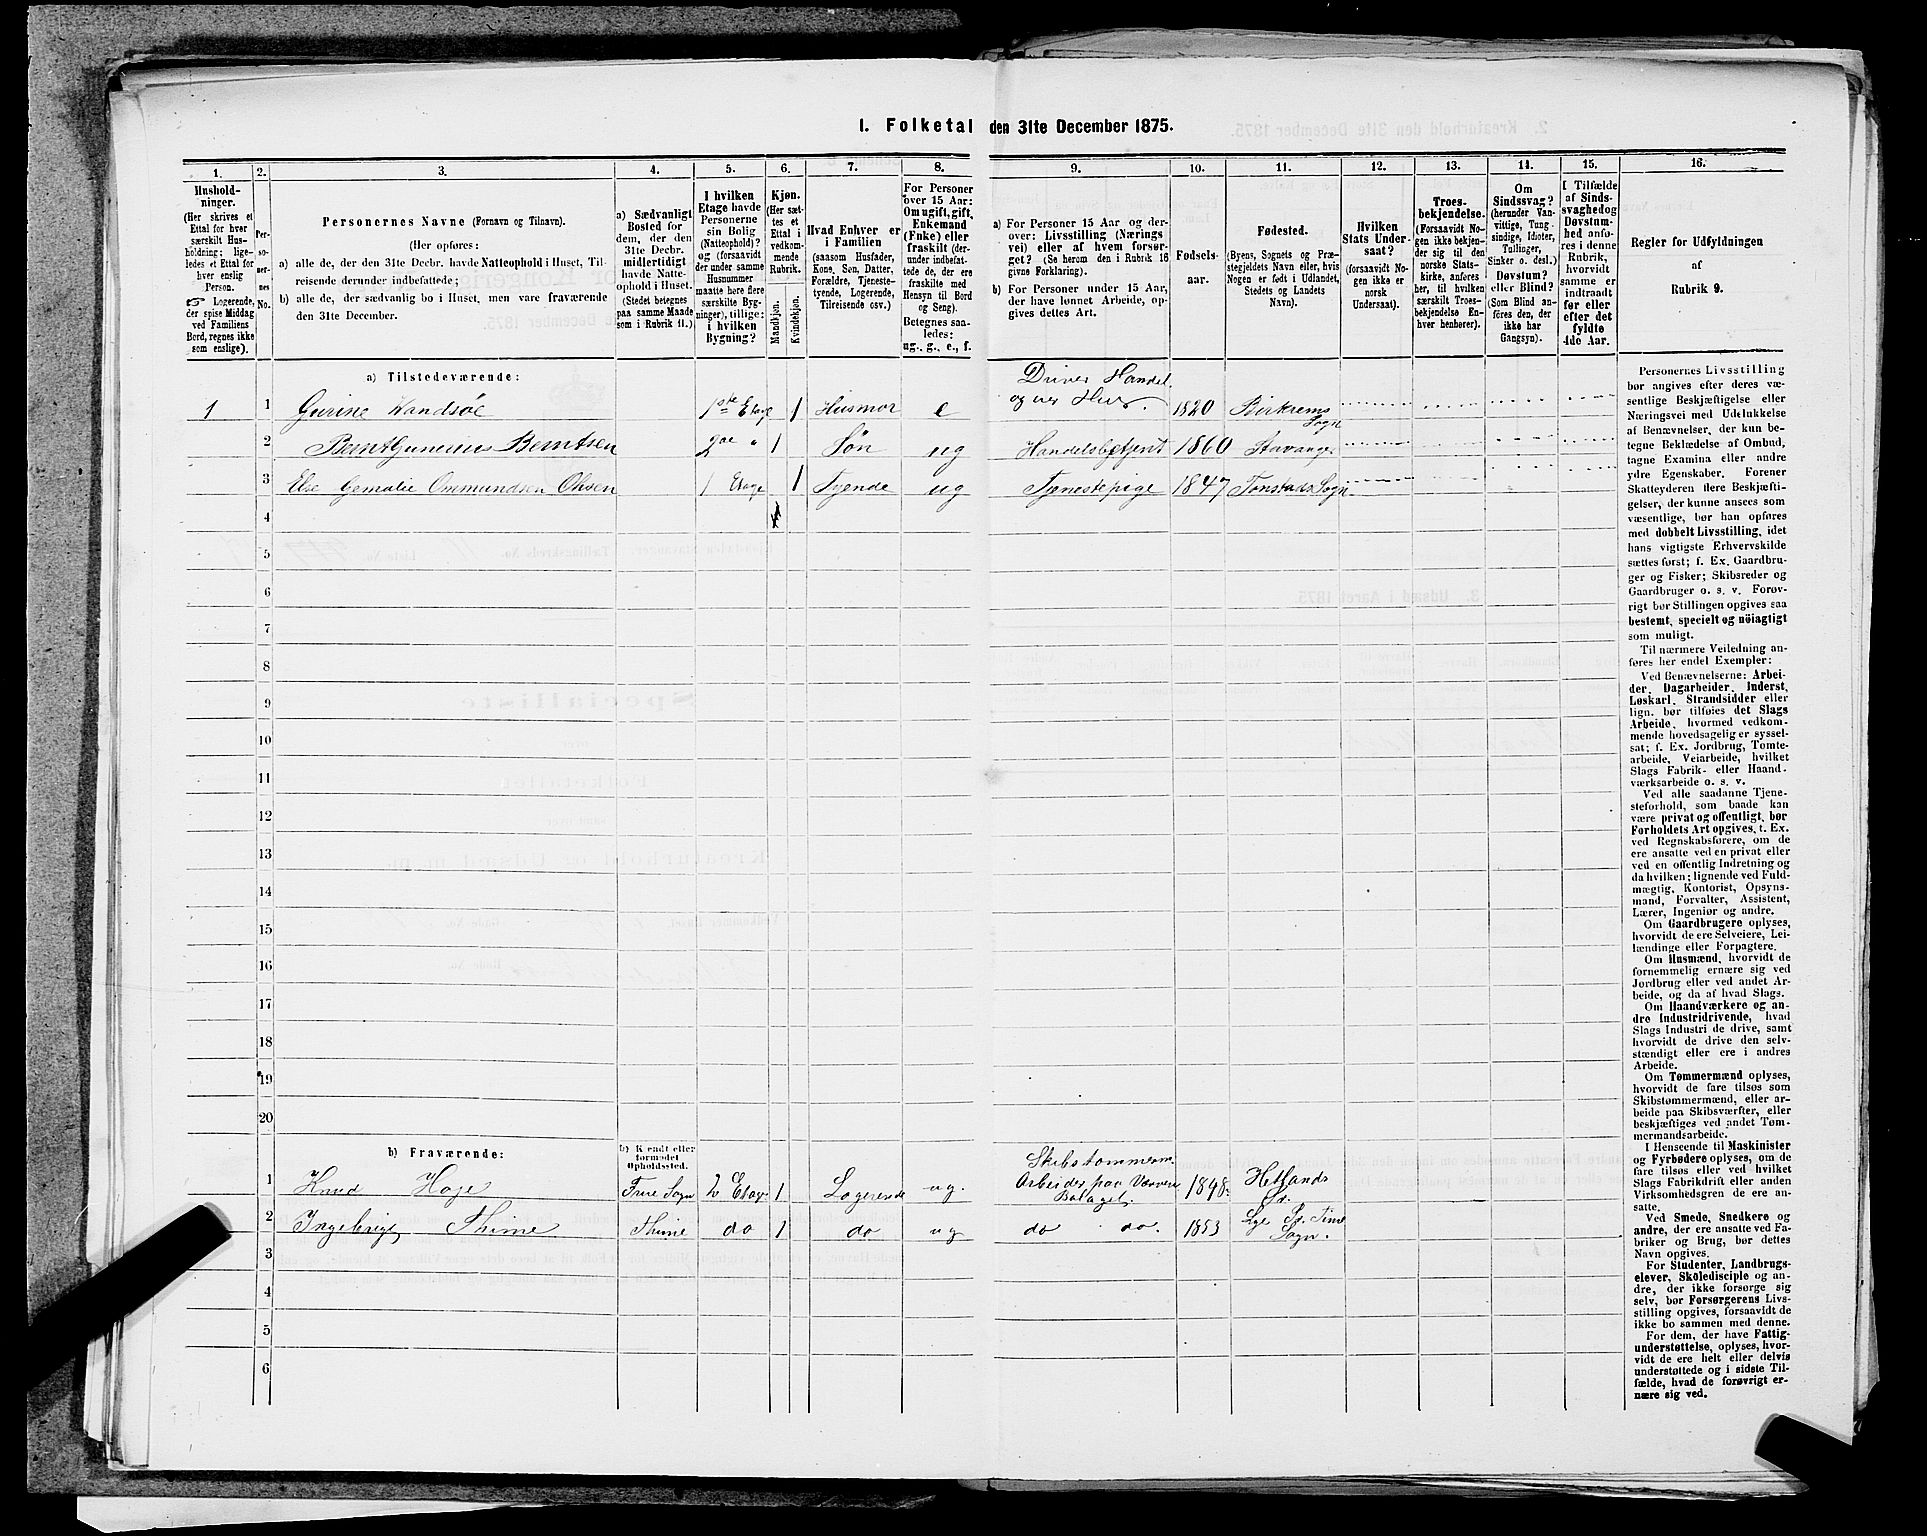 I. Folketal den 31te December 1875.
1.
2.
3.
4.
5.
6.
7.
8.
9.
10.
11.
12.
13.
14.
15.
16.
Husholdninger.
(Her skrives et
Ettal for hver
særskilt Husholdning;
ligeledes et Ettal for
hver enslig
Person.
☞ Logerende,
der spise Middag
ved Familiens
Bord, regnes ikke
som enslige).
Personernes No.
Personernes Navne (Fornavn og Tilnavn).
(Her opføres:
a) alle de, der den 31te Decbr. havde Natteophold i Huset, Tilreisende
derunder indbefattede;
b) alle de, der sædvanlig bo i Huset, men vare fraværende
den 31te December.
a) Sædvanligt
Bosted for
dem, der den
31te Decbr.
midlertidigt
havde Natteophold
i Huset.
(Stedet betegnes
paa samme Maade
som i Rubrik 11.)
I hvilken
Etage havde
Personerne
sin Bolig
(Natteophold)?
og (forsaavidt
der under samme
Husnummer
maatte høre flere
særskilte Bygninger),
tillige:
i hvilken
Bygning?
Kjøn.
(Her sættes
et
Ettal i
vedkommende
Rubrik.
Mandkjøn.
Kvindekjøn.
Hvad Enhver er
i Familien
(saasom Husfader,
Kone, Søn, Datter,
Forældre, Tjenestetyende,
Logerende,
Tilreisende osv.)
For Personer
over 15 Aar:
Om ugift, gift,
Enkemand
(Enke) eller
fraskilt (derunder
indbefattede
de, der ere
fraskilte med
Hensyn til Bord
og Seng).
Betegnes saaledes:
ug., g., e., f.
a) For Personer 15 Aar og derover:
Livsstilling (Næringsvei)
eller af hvem forsørget?
(Se herom den i Rubrik 16
givne Forklaring).
b) For Personer under 15 Aar,
der have lønnet Arbeide, opgives
dettes Art.
Fødselsaar.
Fødested.
(Byens, Sognets og Præstegjeldets
Navn eller, hvis
Nogen er født i Udlandet,
Stedets og Landets
Navn).
Hvilken
Stats Undersaat?
(forsaavidt Nogen
ikke er
norsk
Undersaat).
Troesbekjendelse.
(Forsaavidt Nogen
ikke bekjender
sig til den
norske Statskirke,
anføres
her, til hvilken
særskilt Troesbekjendelse
Enhver
henhører).
Om
Sindssvag?
(herunder Vanvittige,
Tungsindige,
Idioter,
Tullinger,
Sinker o. desl.)
Døvstum?
eller Blind?
(Som Blind anføres
den, der
ikke har
Gangsyn).
I Tilfælde
af Sindssvaghed
og
Døvstumhed
anføres
i denne
Rubrik,
hvorvidt
samme er
indtraadt
før eller
efter det
fyldte
4de Aar.
Regler for Udfyldningen
af
Rubrik 9.
a) Tilstedeværende:
1 1 Gurine 1ste Etage 1 Husmor e Driver Handel 1820 Birkrems Sogn
2 Berntsen 2de " 1 Søn ug Handelsbetjent 1860 Stavanger
3 Else Ommundsen Olsen 1 Etage 1 Tyende ug Tjenestepige 1847 Tonstads Sogn
4
5
6
7
8
9
10
11
12
13
14
15
16
17
18
19
20
b) Fraværende:
b) Kendt eller
formodet
Opholdssted.
1 Knud Hoge Sogn 2 Etage 1 Logerende ug. Skibstømmerm. Arbeider paa 1848 Hetlands Pr.
2 Thime Thime do 1 do ug do do. 1853 Lye Pr. Time Sogn.
3
4
5
6
Personernes Livsstilling
bør angives efter deres væsentlige
Beskjæftigelse eller
Næringsvei med Udelukkelse
af Benævnelser, der kun betegne
Beklædelse af Ombud,
tagne Examina eller andre
ydre Egenskaber. Forener
Skatteyderen flere Beskjæftigelser,
der kunne ansees som
væsentlige, bør han opføres
med dobbelt Livsstilling, idet
hans vigtigste Erhvervskilde
sættes først; f. Ex. Gaardbruger
og Fisker; Skibsreder og
Gaardbruger o. s. v. Forøvrigt
bør Stillingen opgives saa
bestemt, specielt og nöiagtigt
som muligt.
Til nærmere Veiledning anføres
her endel Exempler:
Ved Benævnelserne: Arbeider,
Dagarbeider, Inderst,
Løskarl, Strandsidder eller
lign. bør tilføies det Slags
Arbeide, hvormed vedkommende
hovedsagelig er sysselsat;
f. Ex. Jordbrug, Tomtearbeide,
Veiarbeide, hvilket
Slags Fabrik- eller Haandværksarbeide
o. s. v.
Ved alle saadanne Tjenesteforhold,
som baade kan
være privat og offentligt, bør
Forholdets Art opgives, t. Ex.
ved Regnskabsførere, om de
ere ansatte ved en privat eller
ved en offentlig Indretning og
da hvilken; lignende ved Fuldmægtig,
Kontorist, Opsynsmand,
Forvalter, Assistent,
Lærer, Ingeniør og andre.
Om Gaardbrugere oplyses,
hvorvidt de ere Selveiere, Leilændinge
eller Forpagtere.
Om Husmænd, hvorvidt de
fornemmelig ernære sig ved
Jordbrug eller ved andet Arbeide,
og da af hvad Slags.
Om Haandværkere og andre
Industridrivende, hvad
Slags Industri de drive, samt
hvorvidt de drive den selvstændigt
eller ere i andres
Arbeide.
Om Tømmermænd oplyses,
hvorvidt de fare tilsøs som
Skibstømmermænd, eller arbeide
paa Skibsværfter, eller
beskjæftiges ved andet Tømmermandsarbeide.
I Henseende til Maskinister
og Fyrbødere oplyses, om de
fare tilsøs eller ved hvilket
Slags Fabrikdrift eller anden
Virksomhedsgren de ere ansatte.
Ved Smede, Snedkere og
andre, der ere ansatte ved Fabriker
og Brug, bør dettes
Navn opgives.
For Studenter, Landbrugselever,
Skóledisciple og andre,
der ikke forsørge sig
selv, bør Forsørgerens Livsstilling
opgives, forsaavidt de
ikke bo sammen med denne.
For dem, der have Fattigunderstøttelse,
oplyses, hvorvidt
de ere helt eller delvis
understøttede og i sidste Tilfælde,
hvad de forøvrigt ernære
sig ved.